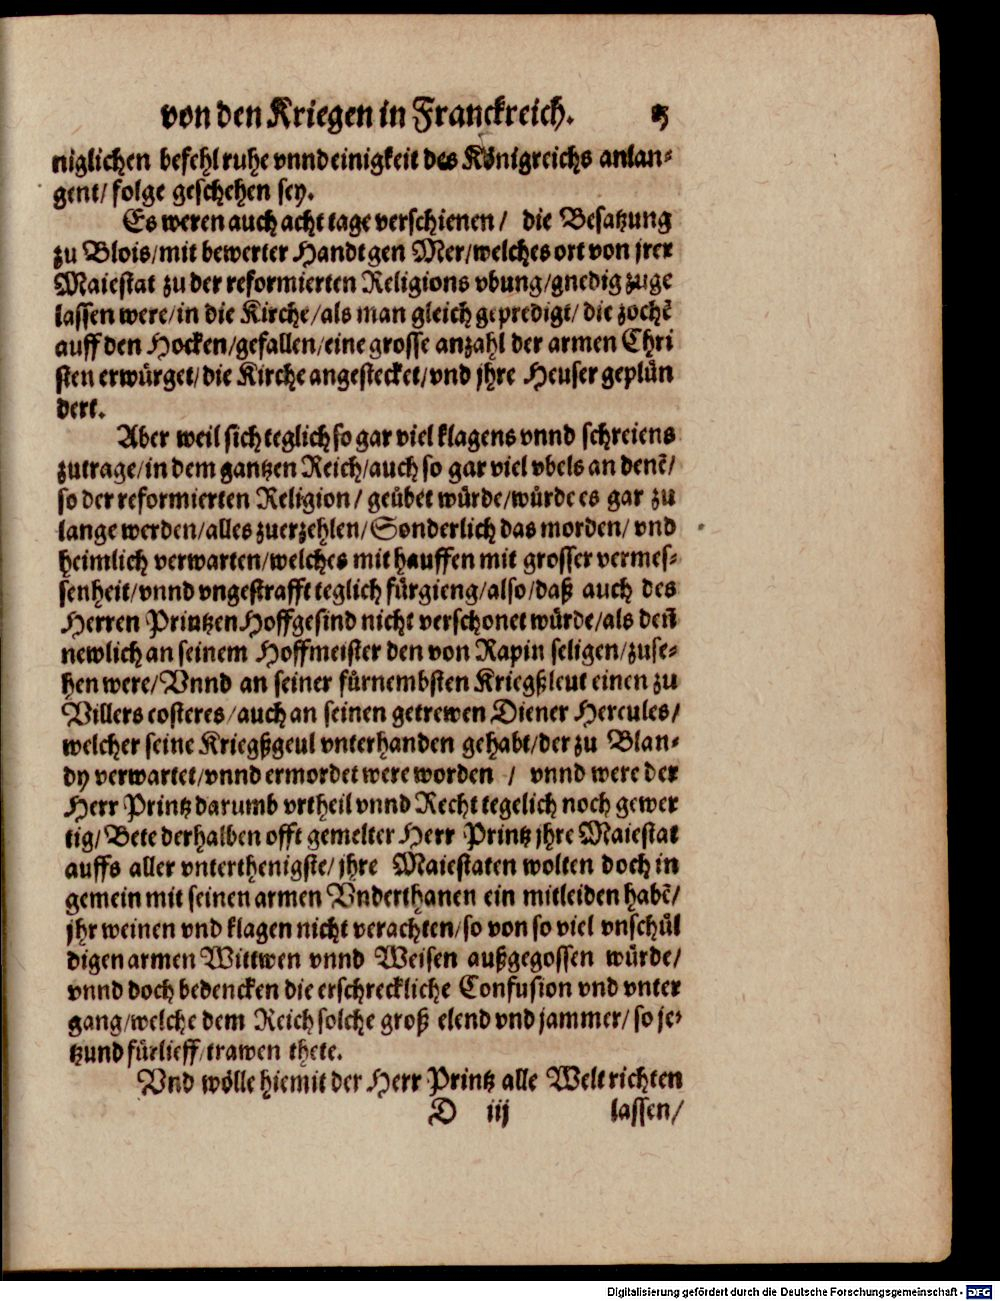 von den Kriegen in Franckreich. 5
niglichen befehl ruhe vnnd einigkeit des Königreichs anlan⸗
gent/ folge geschehen sey.
Es weren auch acht tage verschienen/ die Besatzung
zu Blois/mit bewerter Handt gen Mer/welches ort von jrer
Maiestat zu der reformierten Religions vbung/gnedig zuge
lassen were/in die Kirche/als man gleich gepredigt/ die zochẽ
auff den Hocken/gefallen/eine grosse anzahl der armen Chri
sten erwürget/die Kirche angestecket/vnd jhre Heuser geplün
dert.
Aber weil sich teglich so gar viel klagens vnnd schreiens
zutrage/in dem gantzen Reich/auch so gar viel vbels an denẽ/
so der reformierten Religion/ geübet würde/würde es gar zu
lange werden/alles zuerzehlen/Sonderlich das morden/ vnd
heimlich verwarten/welches mit hauffen mit grosser vermes⸗
senheit/vnnd vngestrafft teglich fürgieng/also/daß auch des
Herren Printzen Hoffgesind nicht verschonet würde/als deñ
newlich an seinem Hoffmeister den von Rapin seligen/zuse⸗
hen were/Vnnd an seiner fürnembsten Kriegßleut einen zu
Villers costeres/auch an seinen getrewen Diener Hercules/
welcher seine Kriegßgeul vnterhanden gehabt/der zu Blan⸗
dy verwartet/vnnd ermordet were worden / vnnd were der
Herr Printz darumb vrtheil vnnd Recht tegelich noch gewer
tig/Bete derhalben offt gemelter Herr Printz jhre Maiestat
auffs aller vnterthenigste/jhre Maiestaten wolten doch in
gemein mit seinen armen Vnderthanen ein mitleiden habẽ/
jhr weinen vnd klagen nicht verachten/so von so viel vnschül
digen armen Wittwen vnnd Weisen außgegossen würde/
vnnd doch bedencken die erschreckliche Confusion vnd vnter
gang/welche dem Reich solche groß elend vnd jammer/ so je⸗
tzund fürlieff/trawen thete.
Vnd wölle hiemit der Herr Printz alle Welt richten
D iij lassen/
Digitalisierung gefördert durch die Deutsche Forschungsgemeinschaft - DFG